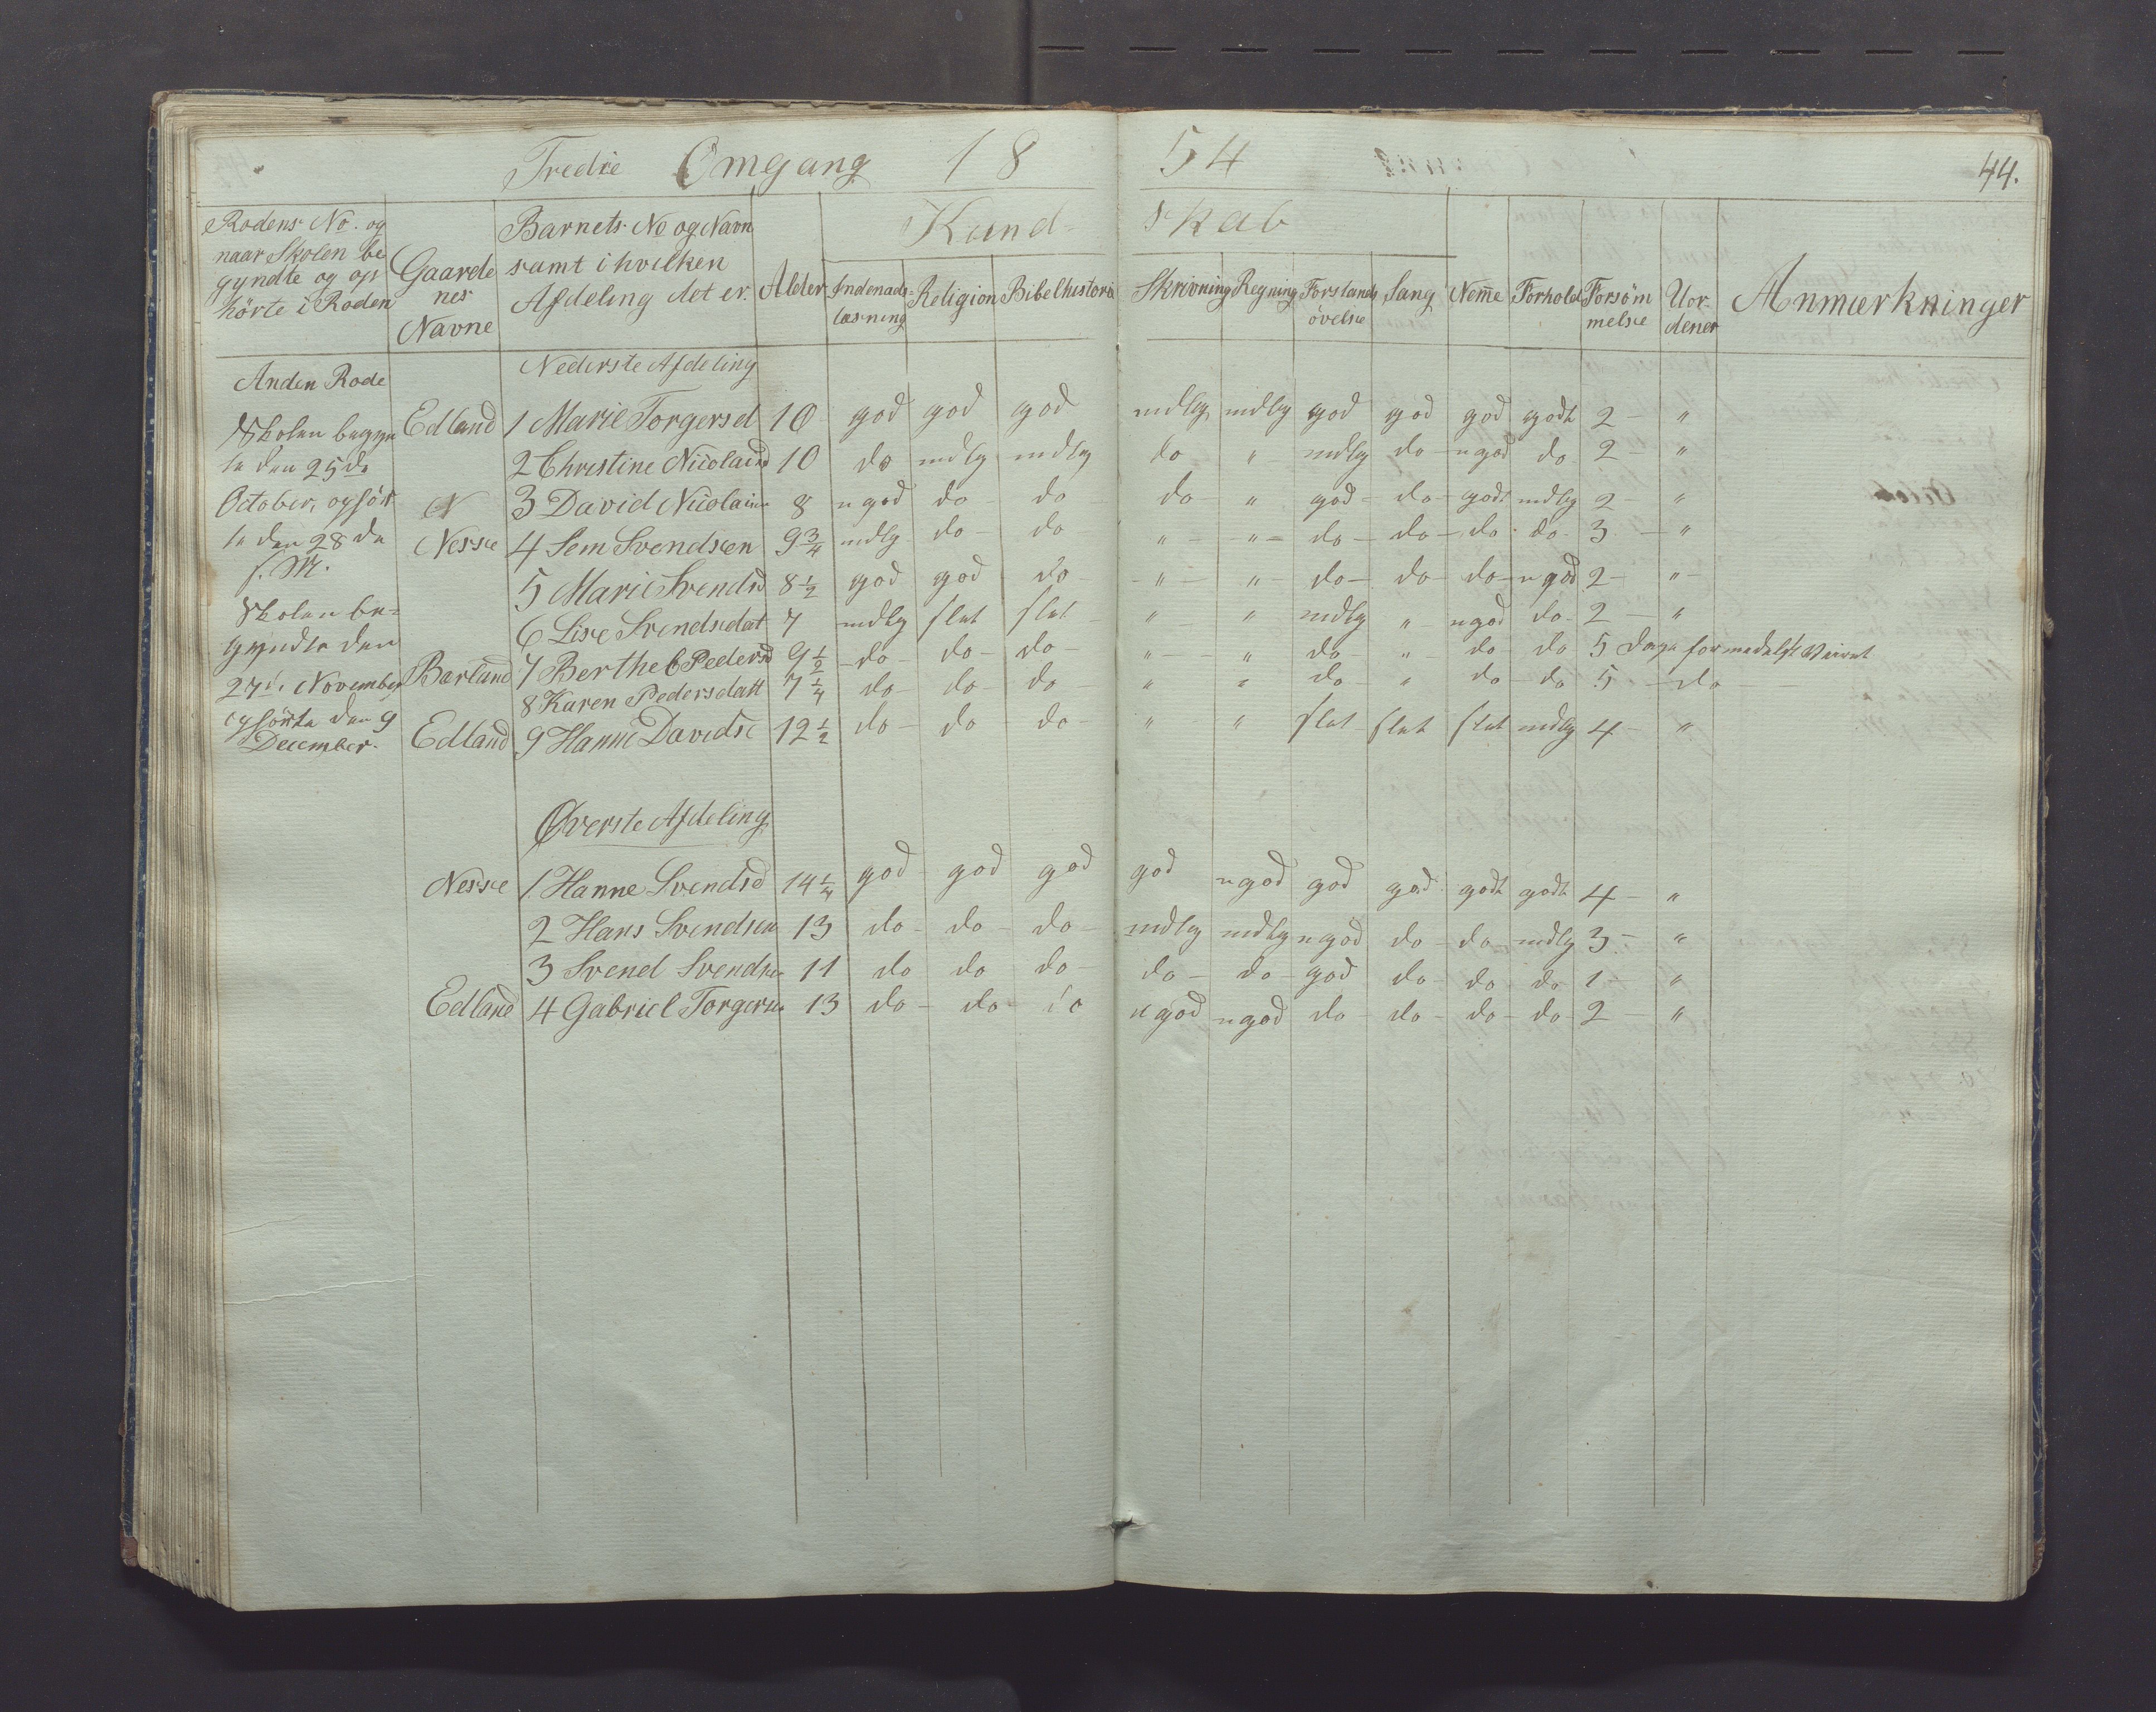 Tredie Omgang 18 54 44.
Rodens No. og naar Skolen begyndte og ophörte i Roden
Gaardenes Navne
Barnets No og Navn samt i hvilken Afdeling det er.
Alder
Kundskab
Indenadslæsning
Religion
Bibelhistorie
Skrivning
Regning
Forstandsövelse
Sang
Nem̄e
Forhold
Forsömmelse
Uordener
Anmærkninger
Anden Rode
Skolen begyn
te den 25de
October, ophört
te den 28de
s. M.
Skolen be=
gyndte den
27de November
ophörte den 9
December.
Nederste Afdeling
Edland 1 Marie Torgersd 10 god god god mdlg mdlg god god god godt 2 - "
2 Christine Nicolaisd 10 do mdlg mdlg do " mdlg do - ugod do 2 - "
N 3 David Nicolaisen 8 ugod do do do - " god - do - godt mdlg 2 - "
Nesse 4 Sem Svendsen 9 3/4 mdlg do - do " - " - do - do - do - do - 3 - "
5 Marie Svendsd 8 1/2 god god do - " - " - do - do - do - ugod 2 - " -
6 Lise Svendsdat 7 mdlg slet slet - " " mdlg " - ugod do - 2 - "
Barland 7 Berthe C Pedersd 9 1/2 - do - do - do - " - " do - " - do - do 5 Dage formedelst Veiret
8 Karen Pedersdatt 7 1/4 do - do - do " " do - " do - do 5 - do -
Edland 9 Hanne Davidsd 12 1/2 do - do do - " " slet slet slet mdlg 4 - "
Øverste Afdeling
Nesse 1. Hanne Svendsd 14 1/4 god - god god god ugod god god godt godt 4 - "
2 Hans Svendsen 13 do - do - do - mdlg mdlg ugod do - do - mdlg 3 - "
3 Svend Svendsen 11 do do do - do - do - god do - do do 1 - "
Edland 4 Gabriel Torgersen 13 do - do - do ugod ugod do - do - do - do - 2 - "